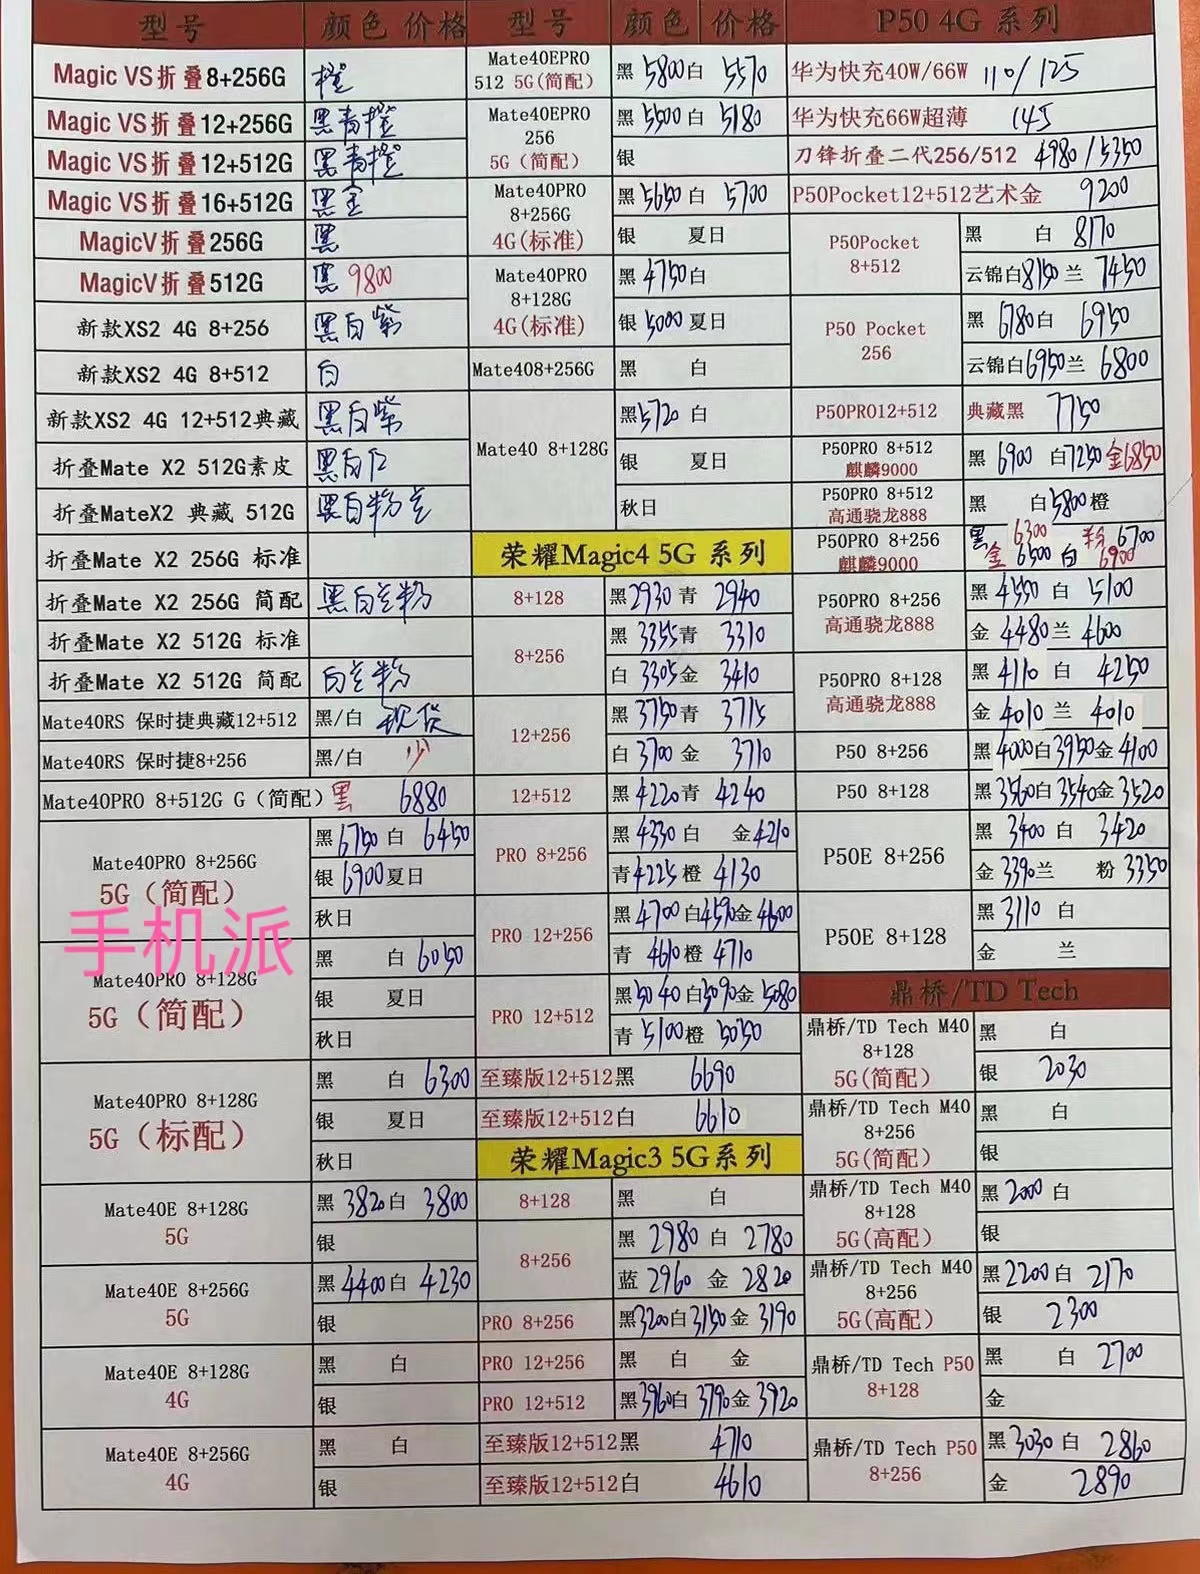 型号 颜色 价格
Magic VS折叠8+256G 橙
Magic VS折叠12+256G 黑青橙
Magic VS折叠12+512G 黑青橙
Magic VS折叠16+512G 黑金
MagicV折叠256G 黑
MagicV折叠512G 黑 9800
新款XS2 4G 8+256 黑白紫
新款XS2 4G 8+512 白
新款XS2 4G 12+512典藏 黑白紫
折叠Mate X2 512G素皮 黑白
折叠MateX2 典藏 512G 黑白粉
折叠Mate X2 256G 标准
折叠Mate X2 256G 简配 黑白兰粉
折叠Mate X2 512G 标准
折叠Mate X2 512G 简配 白兰粉
Mate40RS 保时捷典藏12+512 黑/白 现货
Mate40RS 保时捷8+256 黑/白 少
Mate40PRO 8+512G G（简配）黑 6880
Mate40PRO 8+256G
5G（简配）
黑 6750 白 6450
银 6900 夏日
秋日
手机派
Mate40PRO 8+128G
5G（简配）
黑 白 6050
银 夏日
秋日
Mate40PRO 8+128G
5G（标配）
黑 白 6300
银 夏日
秋日
Mate40E 8+128G
5G
黑 3820 白 3800
银
Mate40E 8+256G
5G
黑 4400 白 4230
银
Mate40E 8+128G
4G
黑 白
银
Mate40E 8+256G
4G
黑 白
银
型号 颜色 价格
Mate40EPRO
512 5G(简配)
黑 5800 白 5570
Mate40EPRO
256
5G（简配）
黑 5500 白 5180
银
Mate40PRO
8+256G
4G(标准)
黑 5650 白 5700
银 夏日
Mate40PRO
8+128G
4G(标准)
黑 4750 白
银 5000 夏日
Mate408+256G 黑 白
Mate40 8+128G
黑 5720 白
银 夏日
秋日
荣耀Magic4 5G 系列
8+128 黑 2930 青 2940
8+256
黑 3355 青 3310
白 3305 金 3410
12+256
黑 3750 青 3715
白 3700 金 3710
12+512 黑 4220 青 4240
PRO 8+256
黑 4330 白 金 4210
青 4225 橙 4130
PRO 12+256
黑 4700 白 4590 金 4600
青 4610 橙 4710
PRO 12+512
黑 5040 白 5090 金 5080
青 5100 橙 5050
至臻版12+512黑 6690
至臻版12+512白 6610
荣耀Magic3 5G系列
8+128 黑 白
8+256
黑 2980 白 2780
蓝 2960 金 2820
PRO 8+256 黑 3200 白 3150 金 3190
PRO 12+256 黑 白 金
PRO 12+512 黑 3960 白 3790 金 3920
至臻版12+512黑 4710
至臻版12+512白 4610
P50 4G 系列
华为快充40W/66W 110/125
华为快充66W超薄 145
刀锋折叠二代256/512 4980/5350
P50Pocket12+512艺术金 9200
P50Pocket
8+512
黑 白 8170
云锦白 8150 兰 7450
P50 Pocket
256
黑 6780 白 6950
云锦白 6950 兰 6800
P50PRO12+512 典藏黑 7750
P50PRO 8+512
麒麟9000
黑 6900 白 7250 金 6850
P50PRO 8+512
高通骁龙888
黑 白 5800 橙
P50PRO 8+256
麒麟9000
黑 6300 粉 6700
金 6500 白 6900
P50PRO 8+256
高通骁龙888
黑 4550 白 5100
金 4480 兰 4600
P50PRO 8+128
高通骁龙888
黑 4110 白 4250
金 4010 兰 4010
P50 8+256 黑 4000 白 3950 金 4100
P50 8+128 黑 3560 白 3540 金 3520
P50E 8+256
黑 3400 白 3420
金 3390 兰 粉 3350
P50E 8+128
黑 3110 白
金 兰
鼎桥/TD Tech
鼎桥/TD Tech M40
8+128
5G(简配)
黑 白
银 2030
鼎桥/TD Tech M40
8+256
5G(简配)
黑 白
银
鼎桥/TD Tech M40
8+128
5G(高配)
黑 2000 白
银
鼎桥/TD Tech M40
8+256
5G(高配)
黑 2200 白 2170
银 2300
鼎桥/TD Tech P50
8+128
黑 白 2700
金
鼎桥/TD Tech P50
8+256
黑 3030 白 2860
金 2890